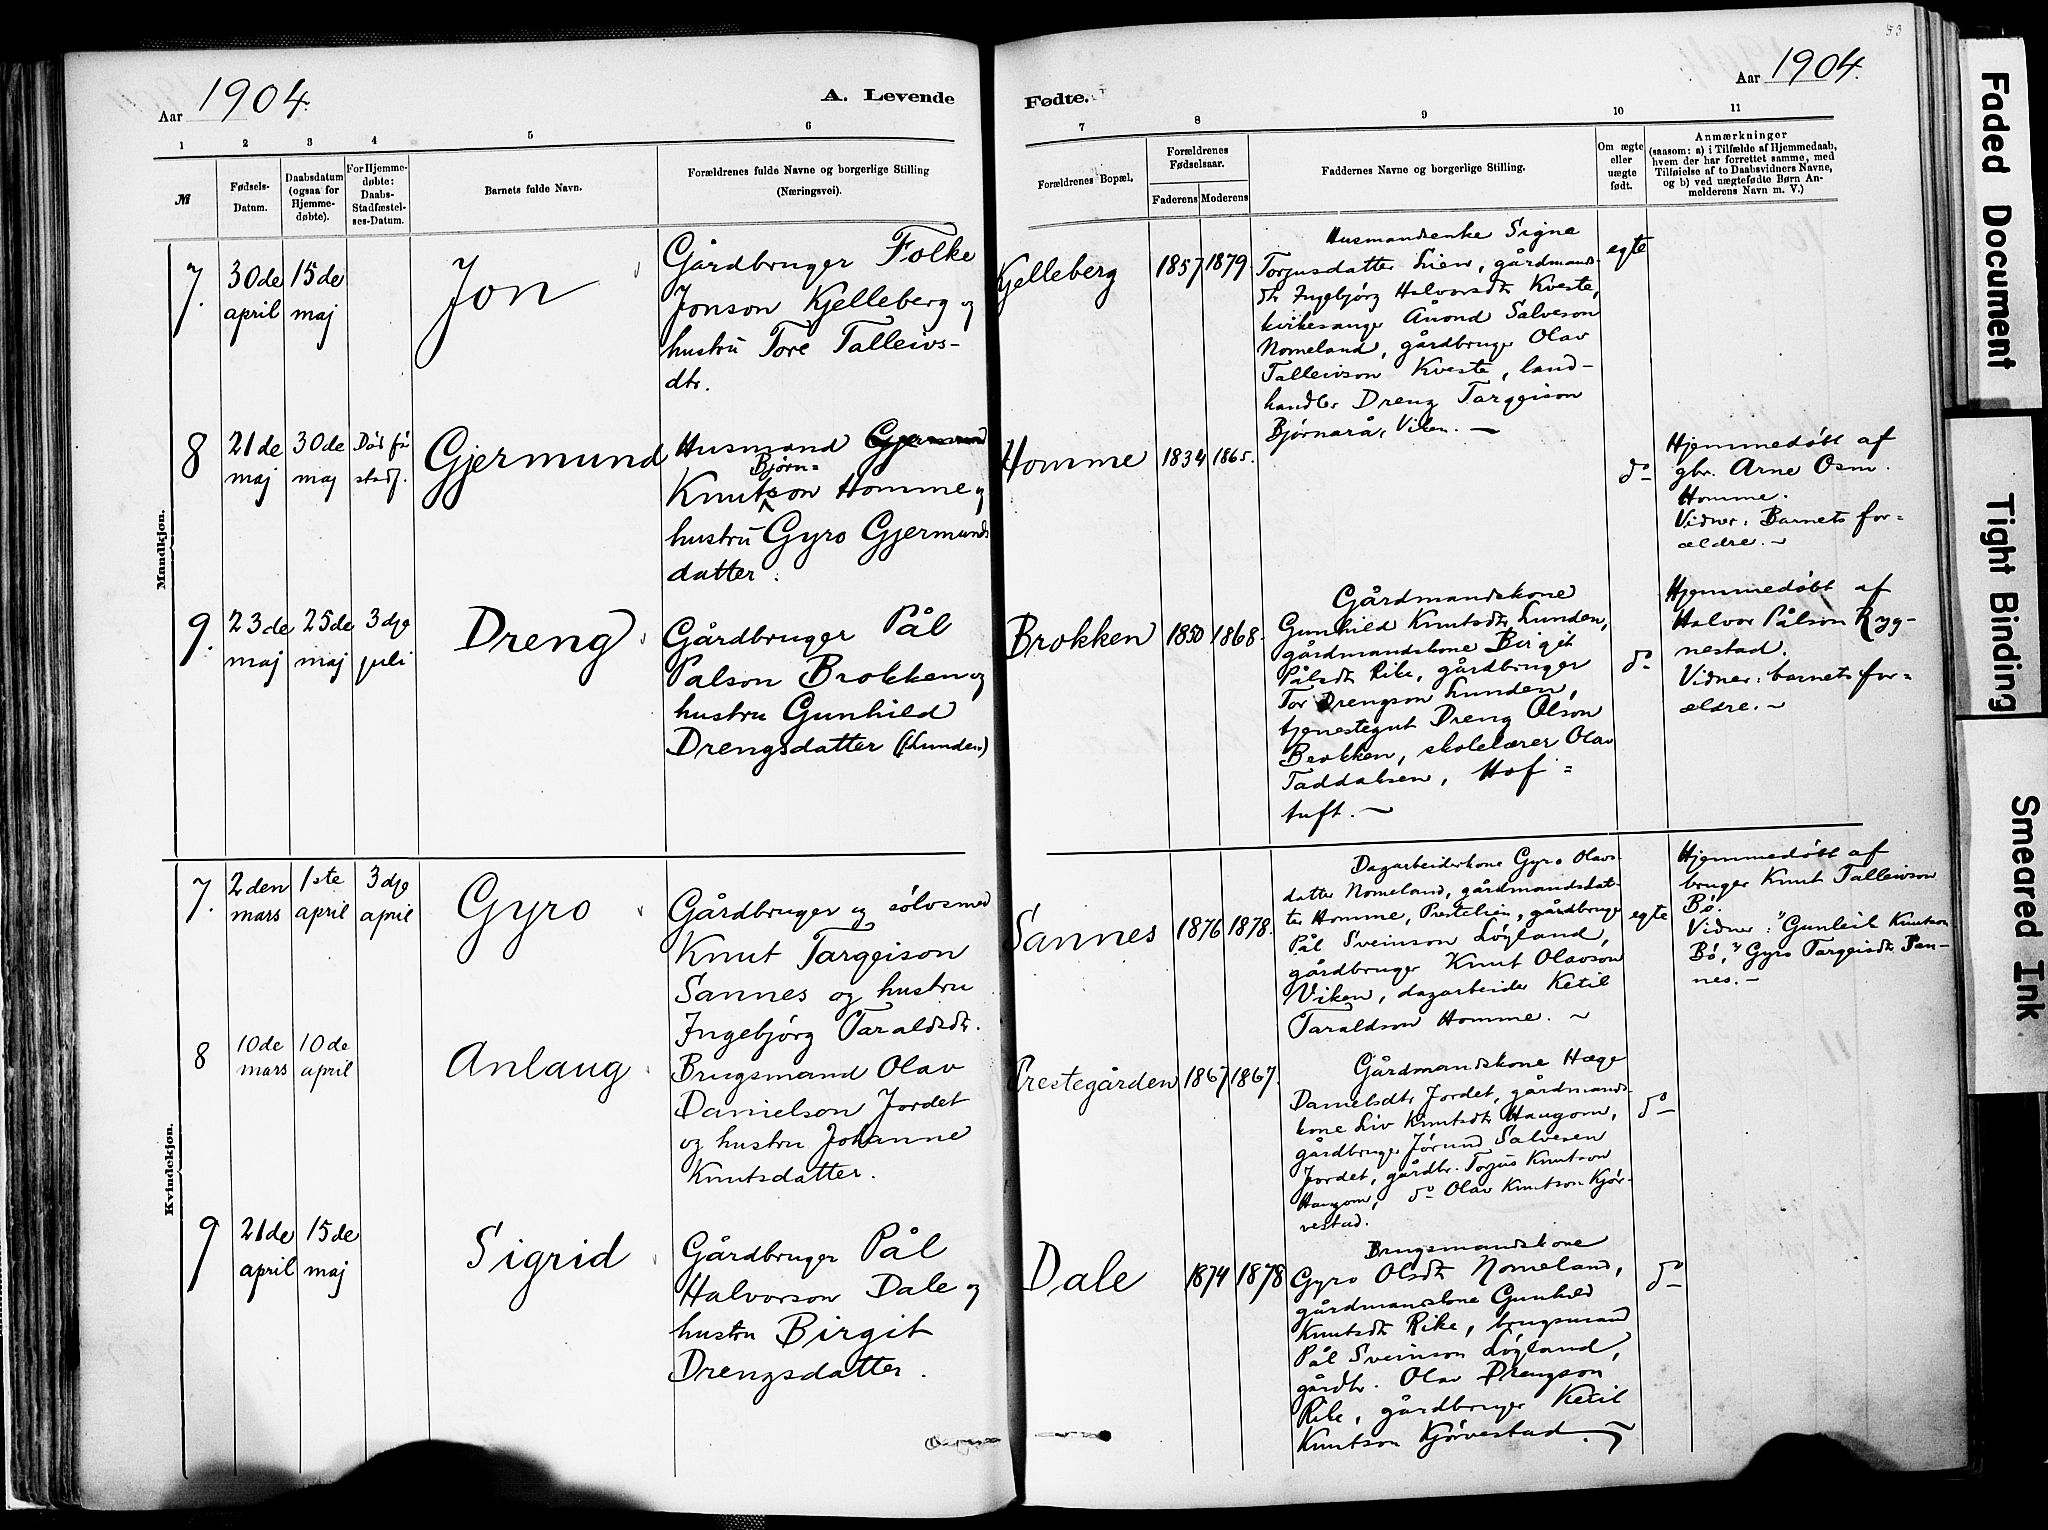 53
Aar 1904.
A. Levende
Fødte.
Aar 1904.
1
2
3
4
5
6
7
8
9
10
11
№
Fødsels-
Datum.
Daabsdatum
(ogsaa for
Hjemme-
døbte).
For Hjemme-
døbte:
Daabs-
Stadfæstel-
ses-Datum.
Barnets fulde Navn.
Forældrenes fulde Navne og borgerlige Stilling
(Næringsvei).
Forældrenes Bopæl.
Forældrenes
Fødselsaar.
Faderens
Moderens
Faddernes Navne og borgerlige Stilling.
Om ægte
eller
uægte
født.
Anmærkninger
(saasom: a) i Tilfælde af Hjemmedaab,
hvem der har forrettet samme, med
Tilføielse af to Daabsvidners Navne,
og b) ved uægtefødte Børn An-
melderens Navn m. V.)
Mandkjøn.
7.
30de
april
15de
maj
Jon
Gårdbruger Folke
Jonson Kjelleberg og
hustru Tore Talleivs-
dtr.
Kjelleberg
1857
1879.
Husmandsenke Signe
Torjusdatter Lien, gårdmands-
dtr Ingebjørg Halvorsdtr Kveste,
kirkesanger Ånond Salveson
Nomeland, gårdbruger Olav
Talleivson Kveste, land-
handler Dreng Targeison
Bjørnarå, Viken. —
egte
8
21de
maj
30de
maj
Død før
stadf.
Gjermund
Husmand
Bjørn=
Knutson Homme og
hustru Gyro Gjermunds
datter.
Homme
1834
1865.
do
Hjemmedøbt af
gbr. Arne Osm.
Homme.
Vidner: Barnets for=
ældre. —
9.
23de
maj
25de
maj
3dje
juli
Dreng
Gårdbruger Pål
Palson Brokken og
hustru Gunhild
Drengsdatter (Lunden)
Brokken
1850
1868.
Gårdmandskone
Gunhild Knutsdtr Lunden,
gårdmandskone Birgit
Pålsdtr Rike, gårdbruger
Tor Drengson Lunden,
tjenestegut Dreng Olson
Brokken, skolelærer Olav
Taddalsen, Hof=
tuft. —
do
Hjemmedøbt af
Halvor Pålson Ryg-
nestad.
Vidner: barnets for=
ældre. —
Kvindekjøn.
7.
2den
mars
1ste
april
3dje
april
Gyro
Gårdbruger og sølvsmed
Knut Targeison
Sannes og hustru
Ingebjørg Taraldsdtr.
Sannes
1876
1878.
Dagarbeiderkone Gyro Olavs-
datter Nomeland, gårdmandsdat-
ter Homme, Prestelien, gårdbruger
Pål Sveinson Løgland,
gårdbruger Knut Olavson
Viken, dagarbeider Ketil
Taraldson Homme. —
egte
Hjemmedøbt af
bruger Knut Talleivson
Bø.
Vidner: Gunleik Knutson
Bø, Gyro Targeisdtr San-
nes. —
8
10de
mars
10de
april
Anlaug
Brugsmand Olav
Danielson Jordet
og hustru Johanne
Knutsdatter.
Prestegården
1867
1867.
Gårdmandskone Hæge
Danielsdtr Jordet, gårdmands-
kone Liv Knutsdtr Haugom,
gårdbruger Jørund Salvesen
Jordet, gårdbr. Torjus Knutson
Haugom, do Olav Knutson Kjør-
vestad.
do
9
21de
april
15de
maj
Sigrid
Gårdbruger Pål
Halvorson Dale og
hustru Birgit
Drengsdatter.
Dale
1874
1878
Brugsmandskone
Gyro Olsdtr Nomeland,
gårdmandskone Gunhild
Knutsdtr Rike, brugsmand
Pål Sveinson Løgland,
gårdbr. Olav Drengson
Rike, gårdbruger Ketil
Knutson Kjørvestad. —
do
Faded Document
Tight Binding
Smeared Ink